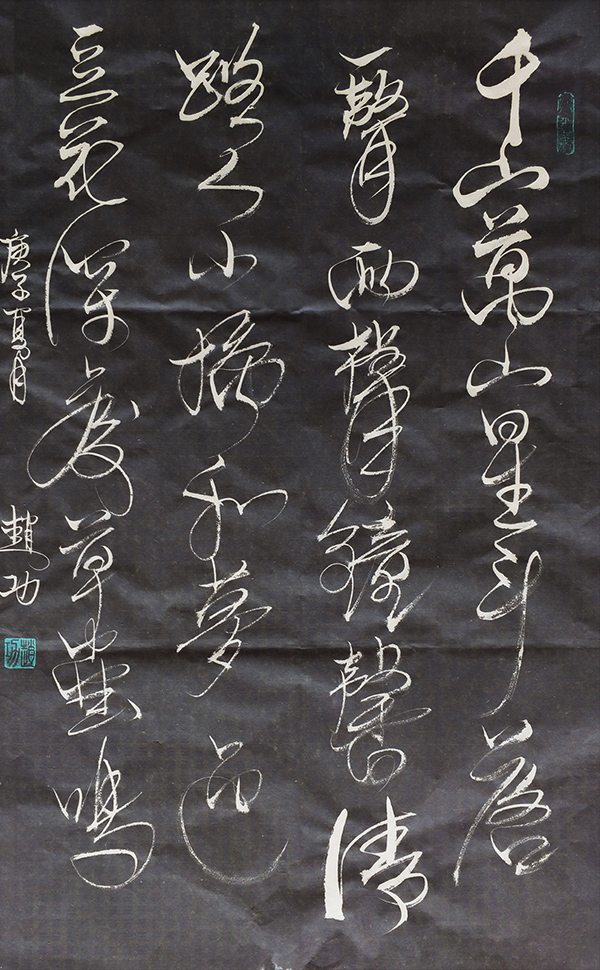 千山萬山星斗落
一聲兩聲鐘磬清
路入小橋和夢過
豆花深處草蟲鳴
庚子夏月 趙功
趙功